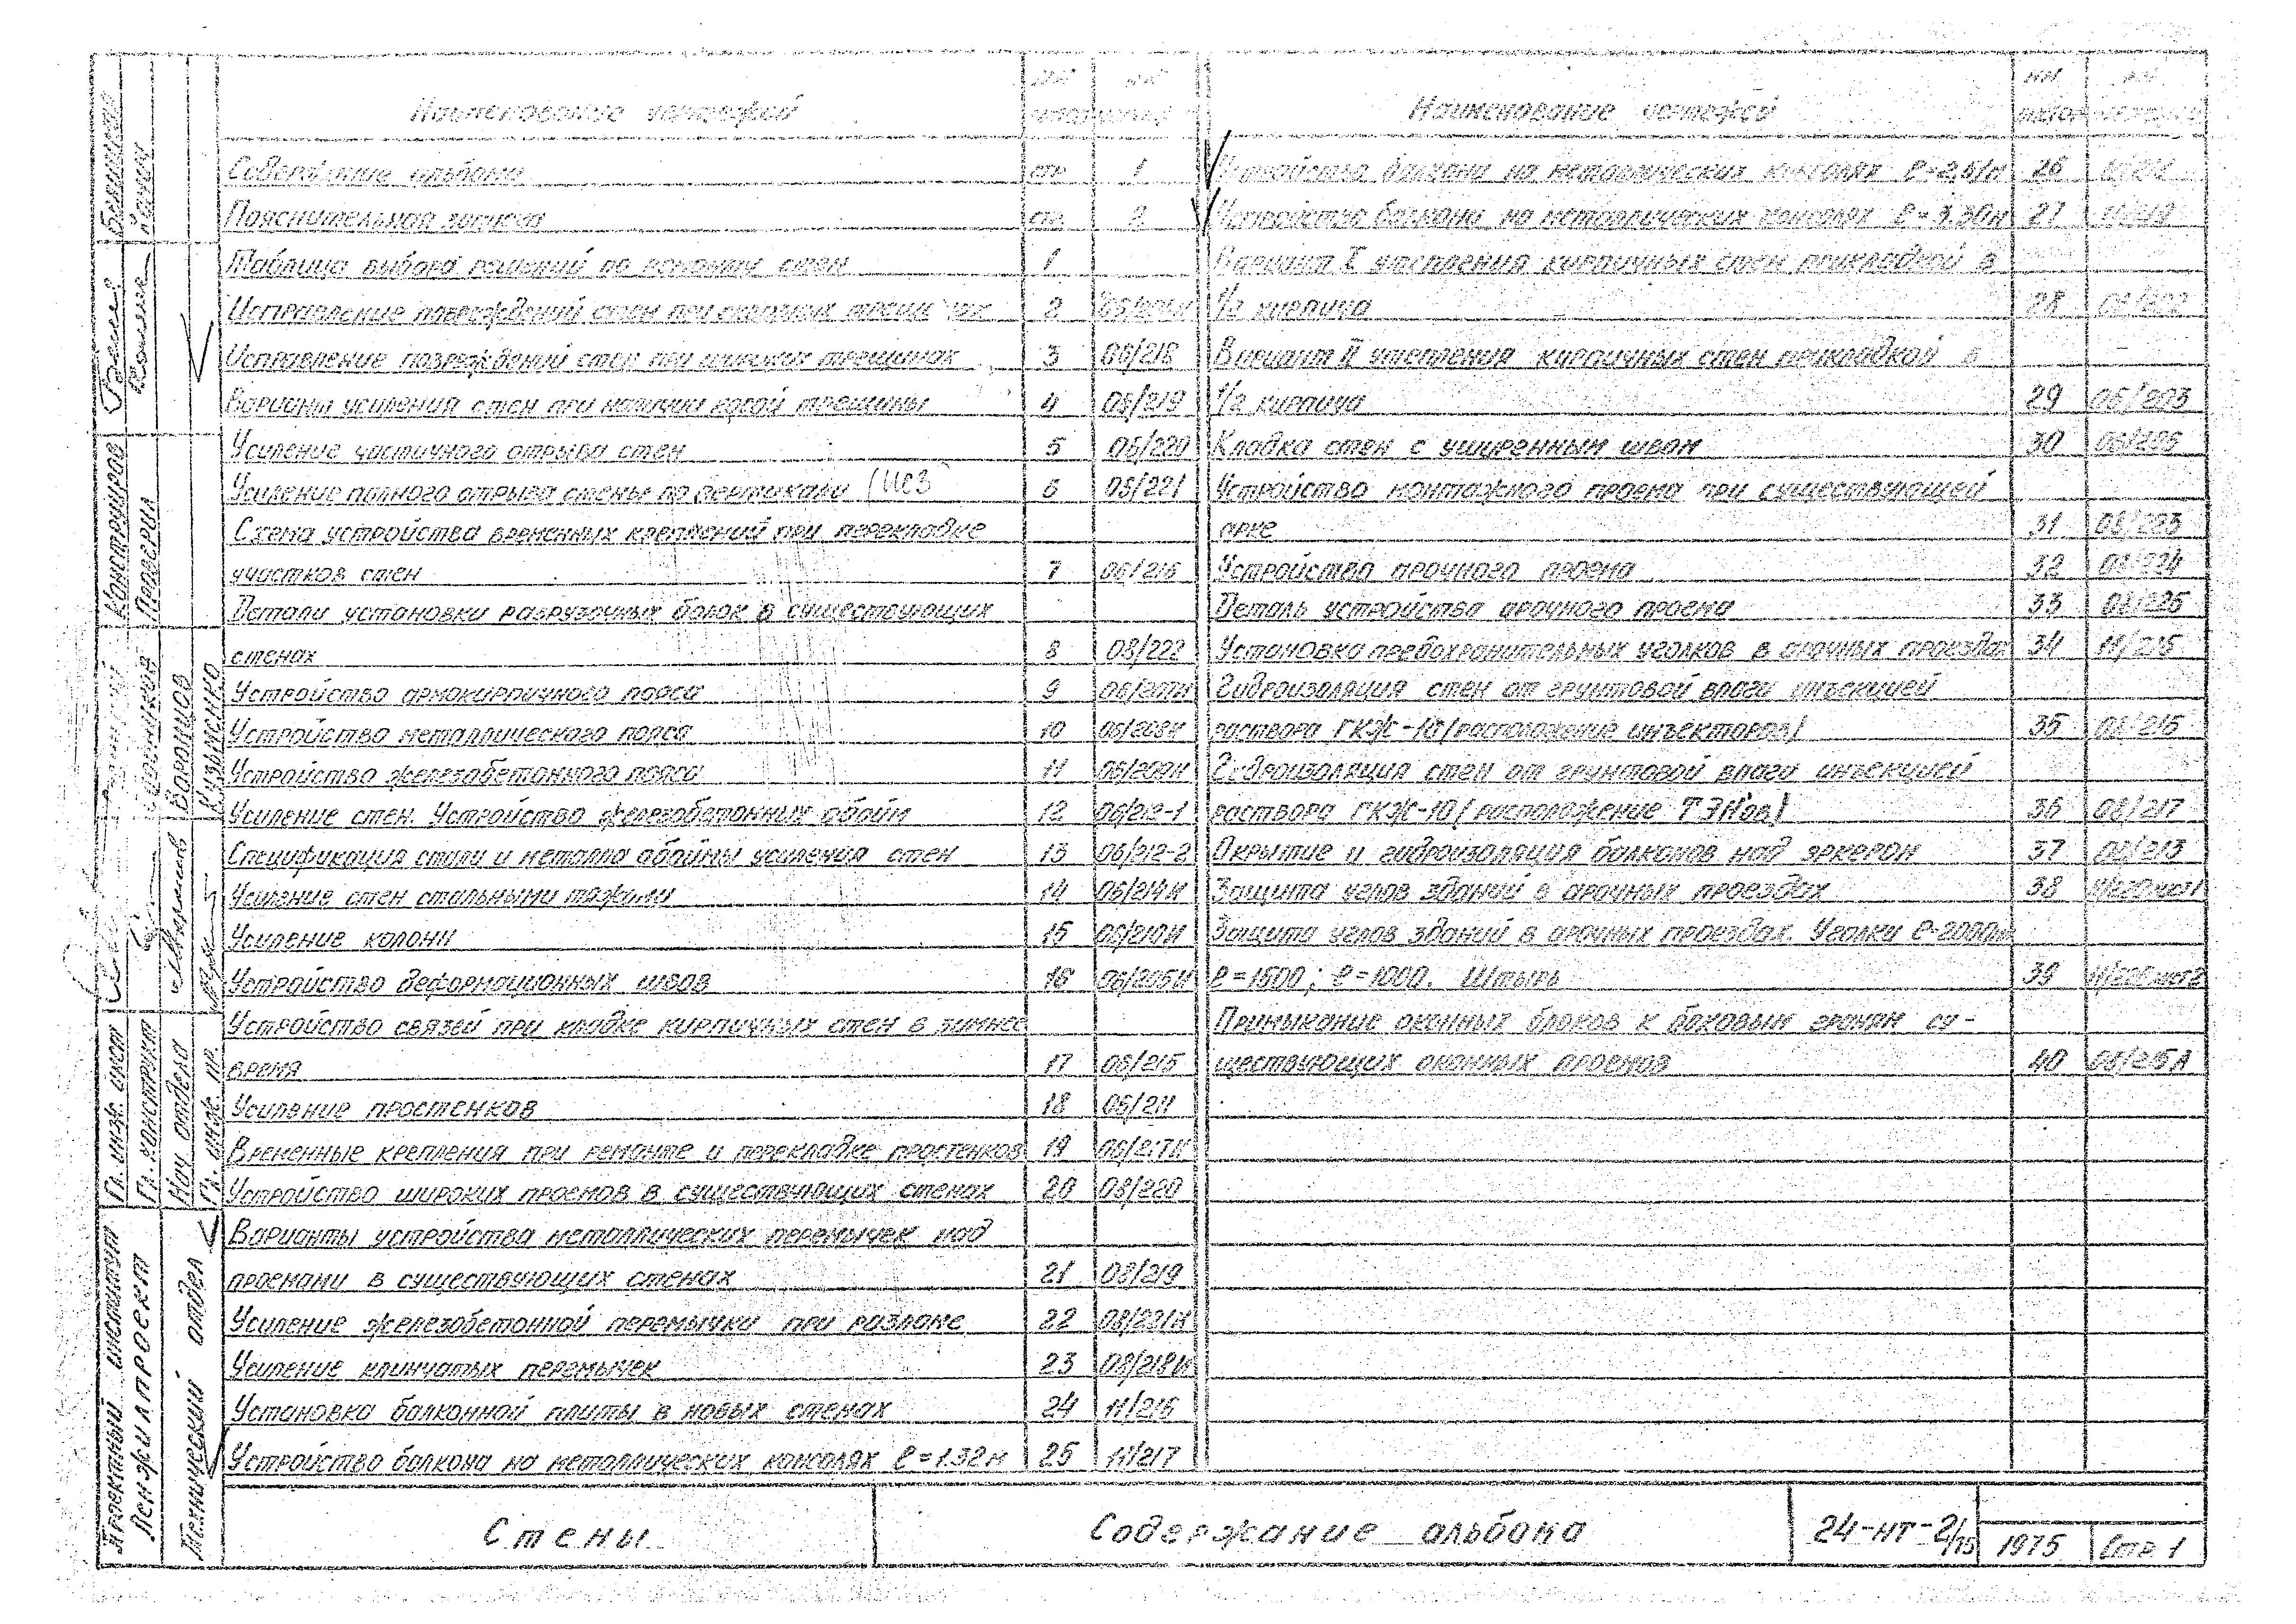 Наименование чертежей
Содержание альбома стр. 1
Пояснительная записка стр. 2
Таблица выбора решений по ремонту стен 1
Исправление повреждений стен при сквозных трещинах 2
Исправление повреждений стен при широких трещинах 3 06/218
Варианты усиления стен при наличии косой трещины 4 06/219
Усиление частичного отрыва стен 5 06/220
Усиление полного отрыва стены по вертикали 6 06/221
Схема устройства временных креплений при перекладке
участков стен 7 06/216
Детали установки разгрузочных балок в существующих
стенах 8 08/222
Устройство армокирпичного пояса 9 06/207И
Устройство металлического пояса 10 06/208И
Устройство железобетонного пояса 11 06/209И
Усиление стен. Устройство железобетонных обойм 12 06/212-1
Спецификация стали и металла обоймы усиления стен 13 06/212-2
Усиление стен стальными тяжами 14 06/214И
Усиление колонн 15 06/210И
Устройство деформационных швов 16 06/205И
Устройство связей при кладке кирпичных стен в зимнее
время 17 06/215
Усиление простенков 18 06/211
Временные крепления при ремонте и перекладке простенков 19 06/217И
Устройство широких проемов в существующих стенах 20 08/220
Варианты устройства металлических перемычек над
проемами в существующих стенах 21 08/219
Усиление железобетонной перемычки при разломе 22 08/221И
Усиление клинчатых перемычек 23 08/218И
Установка балконной плиты в новых стенах 24 11/216
Устройство балкона на металлических консолях ℓ=1.32м 25 11/217
Наименование чертежей
Устройство балкона на металлических консолях ℓ=2,51м 26
Устройство балкона на металлических консолях ℓ=3.30м 27 11/219
Вариант I утепления кирпичных стен прикладкой в
1/2 кирпича 28
Вариант II утепления кирпичных стен прикладкой в
1/2 кирпича 29 06/203
Кладка стен с уширенным швом 30
Устройство монтажного проема при существующей
арке 31 08/223
Устройство арочного проема 32 08/224
Деталь устройства арочного проема 33 08/225
Установка предохранительных уголков в арочных проездах 34 11/215
Гидроизоляция стен от грунтовой влаги инъекцией
раствора ГКЖ-10 (расположение инъекторов) 35 08/216
Гидроизоляция стен от грунтовой влаги инъекцией
раствора ГКЖ-10 (расположение ТЭН'ов) 36 08/217
Покрытие и гидроизоляция балконов над эркером 37 08/213
Защита углов зданий в арочных проездах 38 11/220 лист 1
Защита углов зданий в арочных проездах. Уголки ℓ-2000м
ℓ=1500; ℓ=1000. Штырь 39 11/220 лист 2
Примыкание оконных блоков к боковым граням су-
ществующих оконных проемов 40 08/215А
Проектный институт
Ленжилпроект
Технический отдел
Гл. инж. инст
Гл. конструкт
Нач отдела
Гл. инж. пр.
Воронцов
Кузьменко
Конструиров
Проверил
Стены
Содержание альбома
24-НТ-2/75
1975
Стр. 1